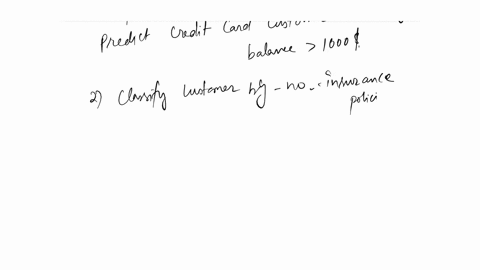 Predict Credit Card
balance > 1000 $
2) Classify customer by no. insurance
polici